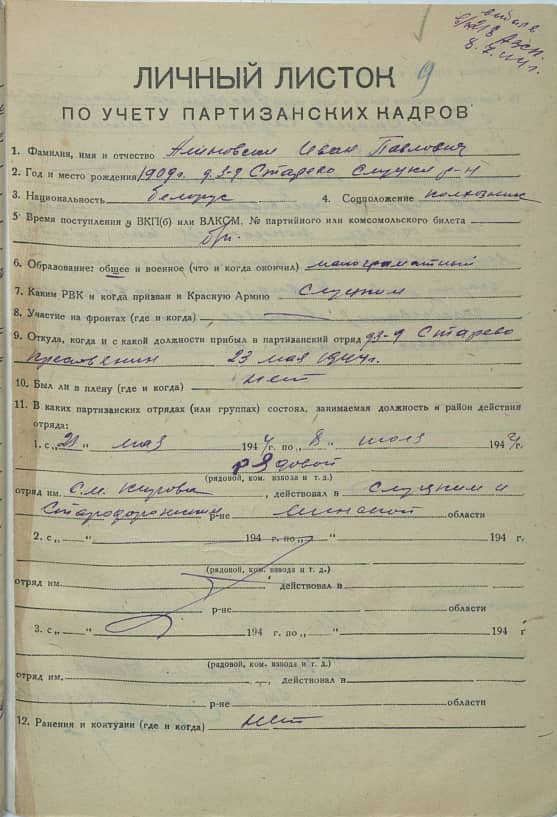 8. 7. 44 г.
9
ЛИЧНЫЙ ЛИСТОК
ПО УЧЕТУ ПАРТИЗАНСКИХ КАДРОВ
1. Фамилия, имя и отчество Алиновский Иван Павлович
2. Год и место рождения 1909 г. д. Старево Слуцкий р-н
3. Национальность белорус 4. Соцположение колхозник
5 Время поступления в ВКП(б) или ВЛКСМ, № партийного или комсомольского билета
б/п.
6. Образование: общее и военное (что и когда окончил) малограматный
7. Каким РВК и когда призван в Красную Армию Слуцким
8. Участие на фронтах (где и когда)
9. Откуда, когда и с какой должности прибыл в партизанский отряд Старево
23 мая 1944 г.
10. Был ли в плену (где и когда) нет
11. В каких партизанских отрядах (или группах) состоял, занимаемая должность и район действия
отряда:
1. с „ “ мая 1944 г. по „8 “ июля 1944 г.
рядовой
(рядовой, ком. взвода и т. д.)
отряд им. С. М. Кирова, действовал в Слуцким и
Стародорожским р-не Минской области
2. с „ “ 194 г. по „ “ 194 г
(рядовой, ком. взвода и т. д.)
отряд им. действовал в
р-не области
3. с „ “ 194 г. по „ “ 194 г
(рядовой, ком. взвода и т. д.)
отряд им. , действовал в
р-не области
12. Ранения и контузии (где и когда) нет